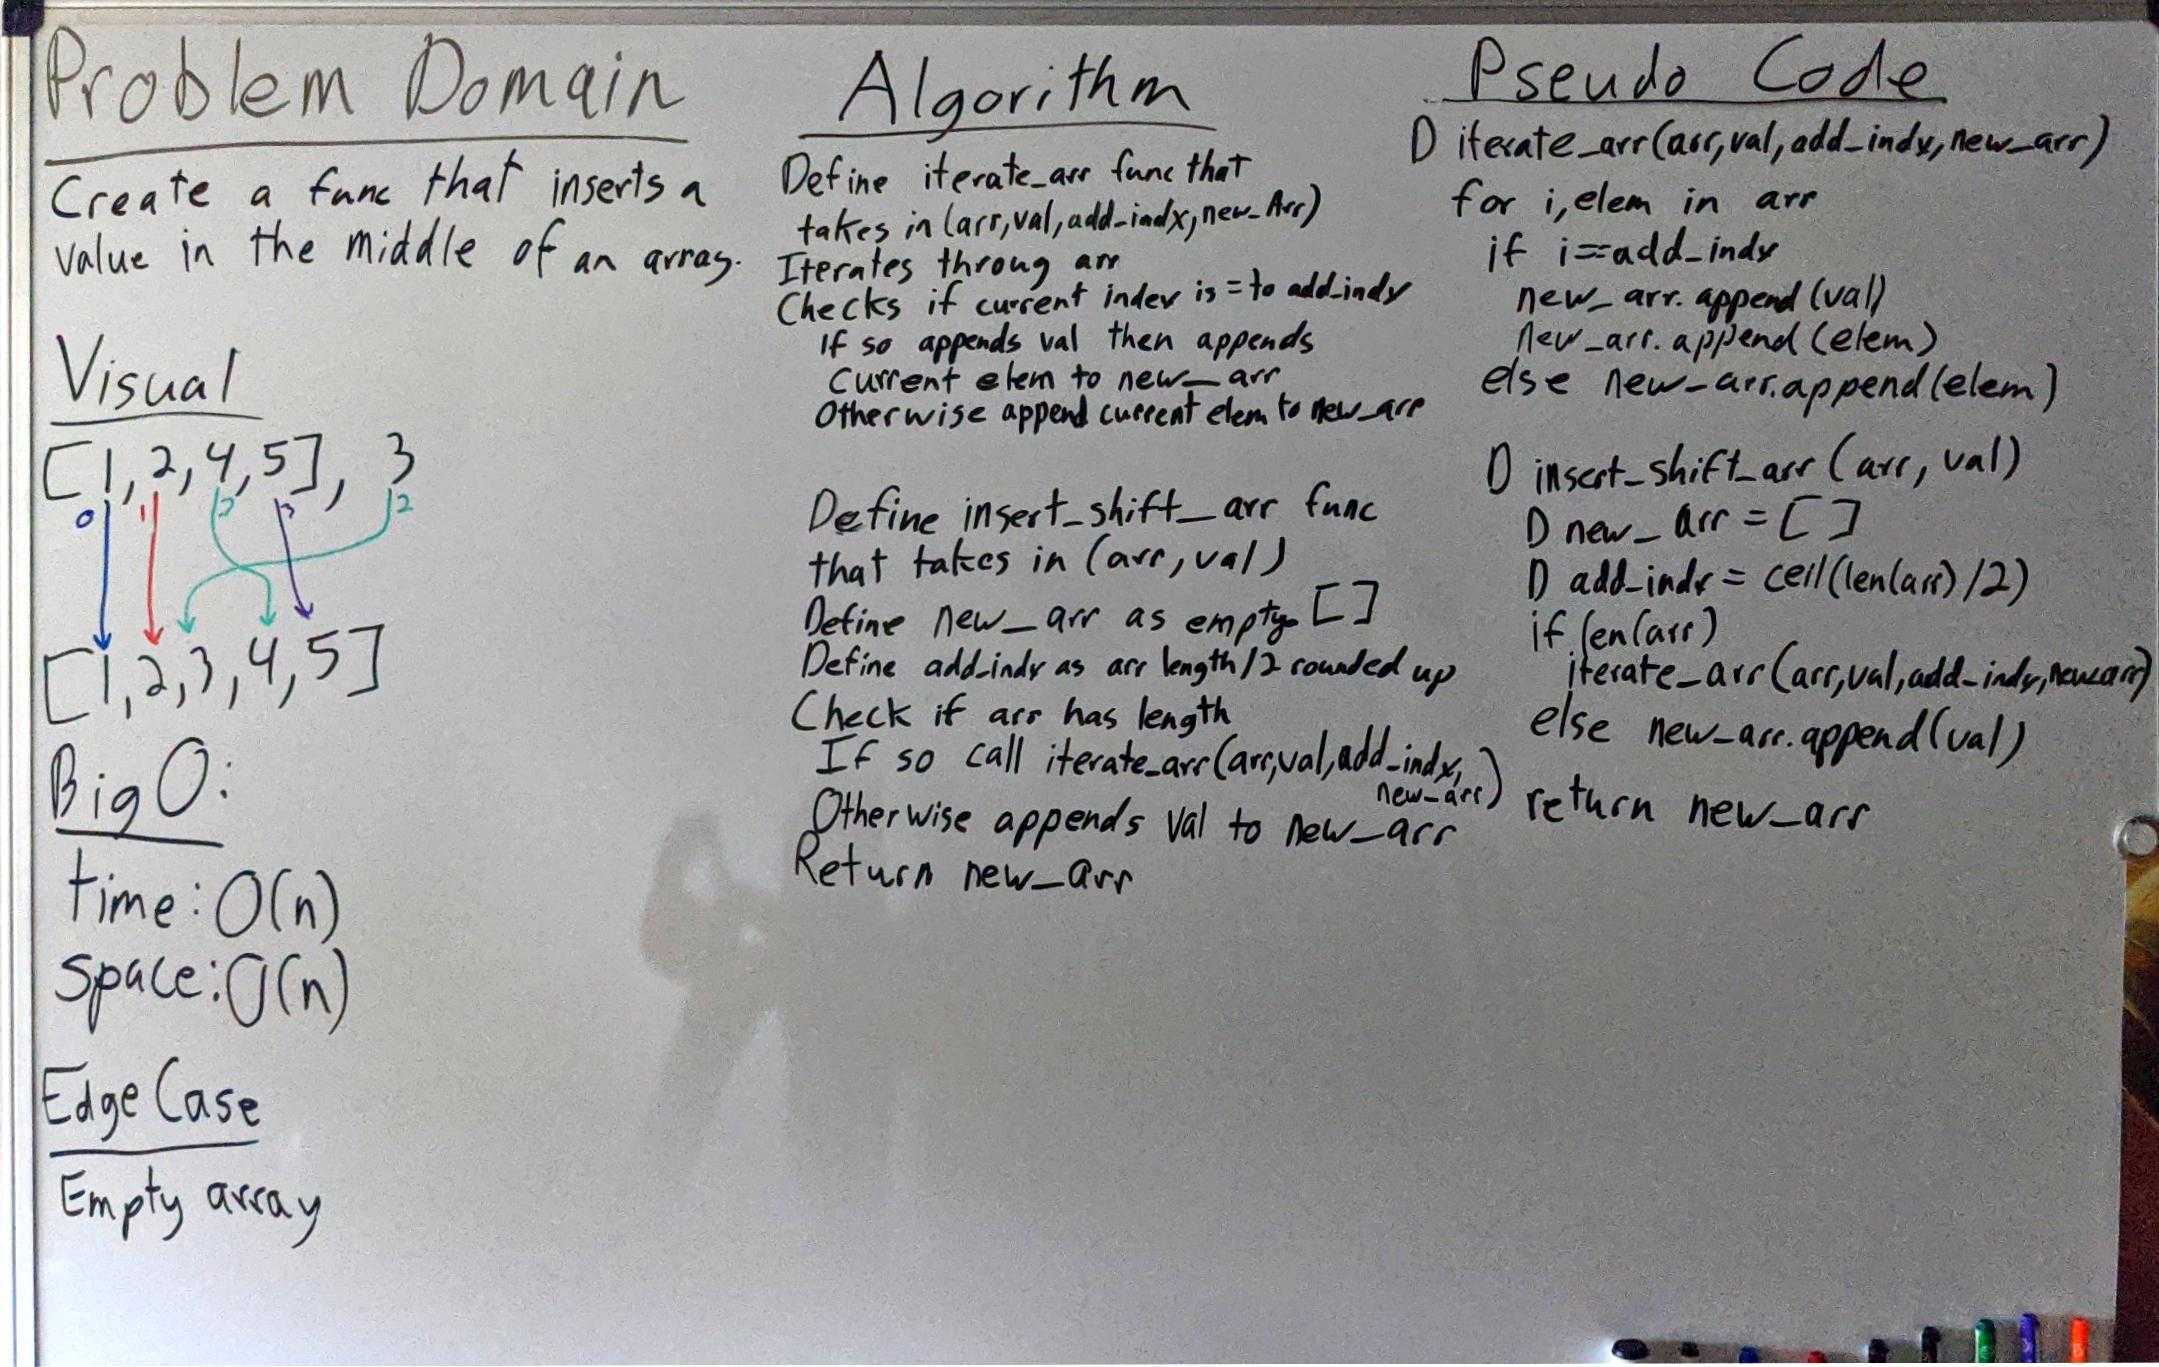 Problem Domain
Create a func that inserts a
value in the middle of an array.
Visual
[1,2,4,5], 3
0 1 2 3 2
[1,2,3,4,5]
Big O:
time: O(n)
space: O(n)
Edge Case
Empty array
Algorithm
Define iterate_arr func that
takes in (arr,val,add_indx,new_Arr)
Iterates throug arr
Checks if current index is = to add_indx
If so appends val then appends
current elem to new_arr
Otherwise append current elem to new_arr
Define insert_shift_arr func
that takes in (arr, val)
Define new_arr as empty []
Define add_indx as arr length/2 rounded up
Check if arr has length
If so call iterate_arr(arr,val,add_indx,
new_arr)
Otherwise appends val to new_arr
Return new_arr
Pseudo Code
D iterate_arr(arr,val,add_indx,new_arr)
for i,elem in arr
if i==add_indx
new_arr.append(val)
new_arr.append(elem)
else new_arr.append(elem)
D insert_shift_arr (arr, val)
D new_arr = []
D add_indx = ceil(len(arr)/2)
if len(arr)
iterate_arr(arr,val,add_indx,new_arr)
else new_arr.append(val)
return new_arr